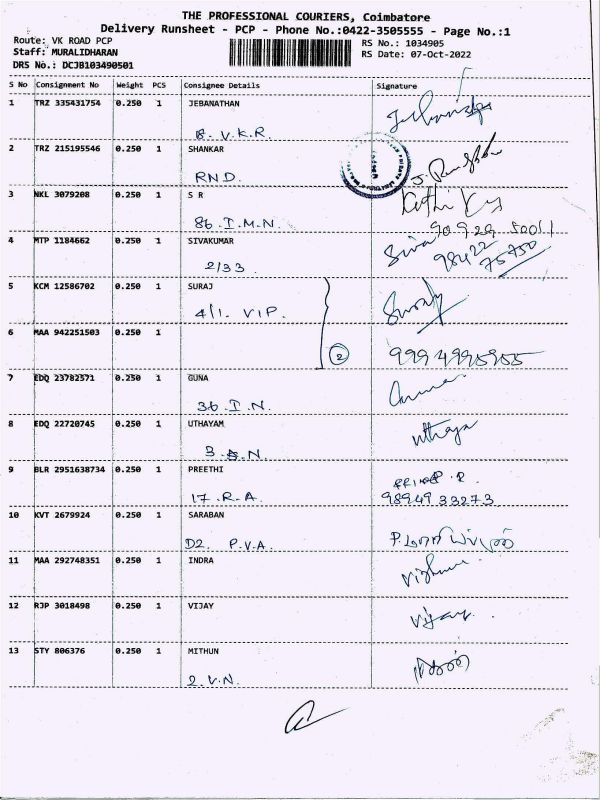 THE PROFESSIONAL COURIERS, Coimbatore
Delivery Runsheet - PCP - Phone No.:0422-3505555 - Page No.:1
Route: VK ROAD PCP
Staff: MURALIDHARAN
DRS No.: DCJB103490501
RS No.: 1034905
RS Date: 07-Oct-2022
S No Consignment No Weight PCS Consignee Details Signature
1 TRZ 335431754 0.250 1 JEBANATHAN
8. V.K.R.
2 TRZ 215195546 0.250 1 SHANKAR
RND.
3 NKL 3079208 0.250 1 S R
86. I.M.N.
90929 50011
4 MTP 1184662 0.250 1 SIVAKUMAR Siva 98422
2/33. 75750
5 KCM 12586702 0.250 1 SURAJ
4/1. VIP. Suraj
6 MAA 942251503 0.250 1
2 9994995955
7 EDQ 23782571 0.250 1 GUNA
36. I.N.
8 EDQ 22720745 0.250 1 UTHAYAM uthaya
3 N.
9 BLR 2951638734 0.250 1 PREETHI
17. R.A. 98949 33273
10 KVT 2679924 0.250 1 SARABAN
D2. P.V.A.
11 MAA 292748351 0.250 1 INDRA
12 RJP 3018498 0.250 1 VIJAY
Vijay
13 STY 806376 0.250 1 MITHUN
2. V.N.